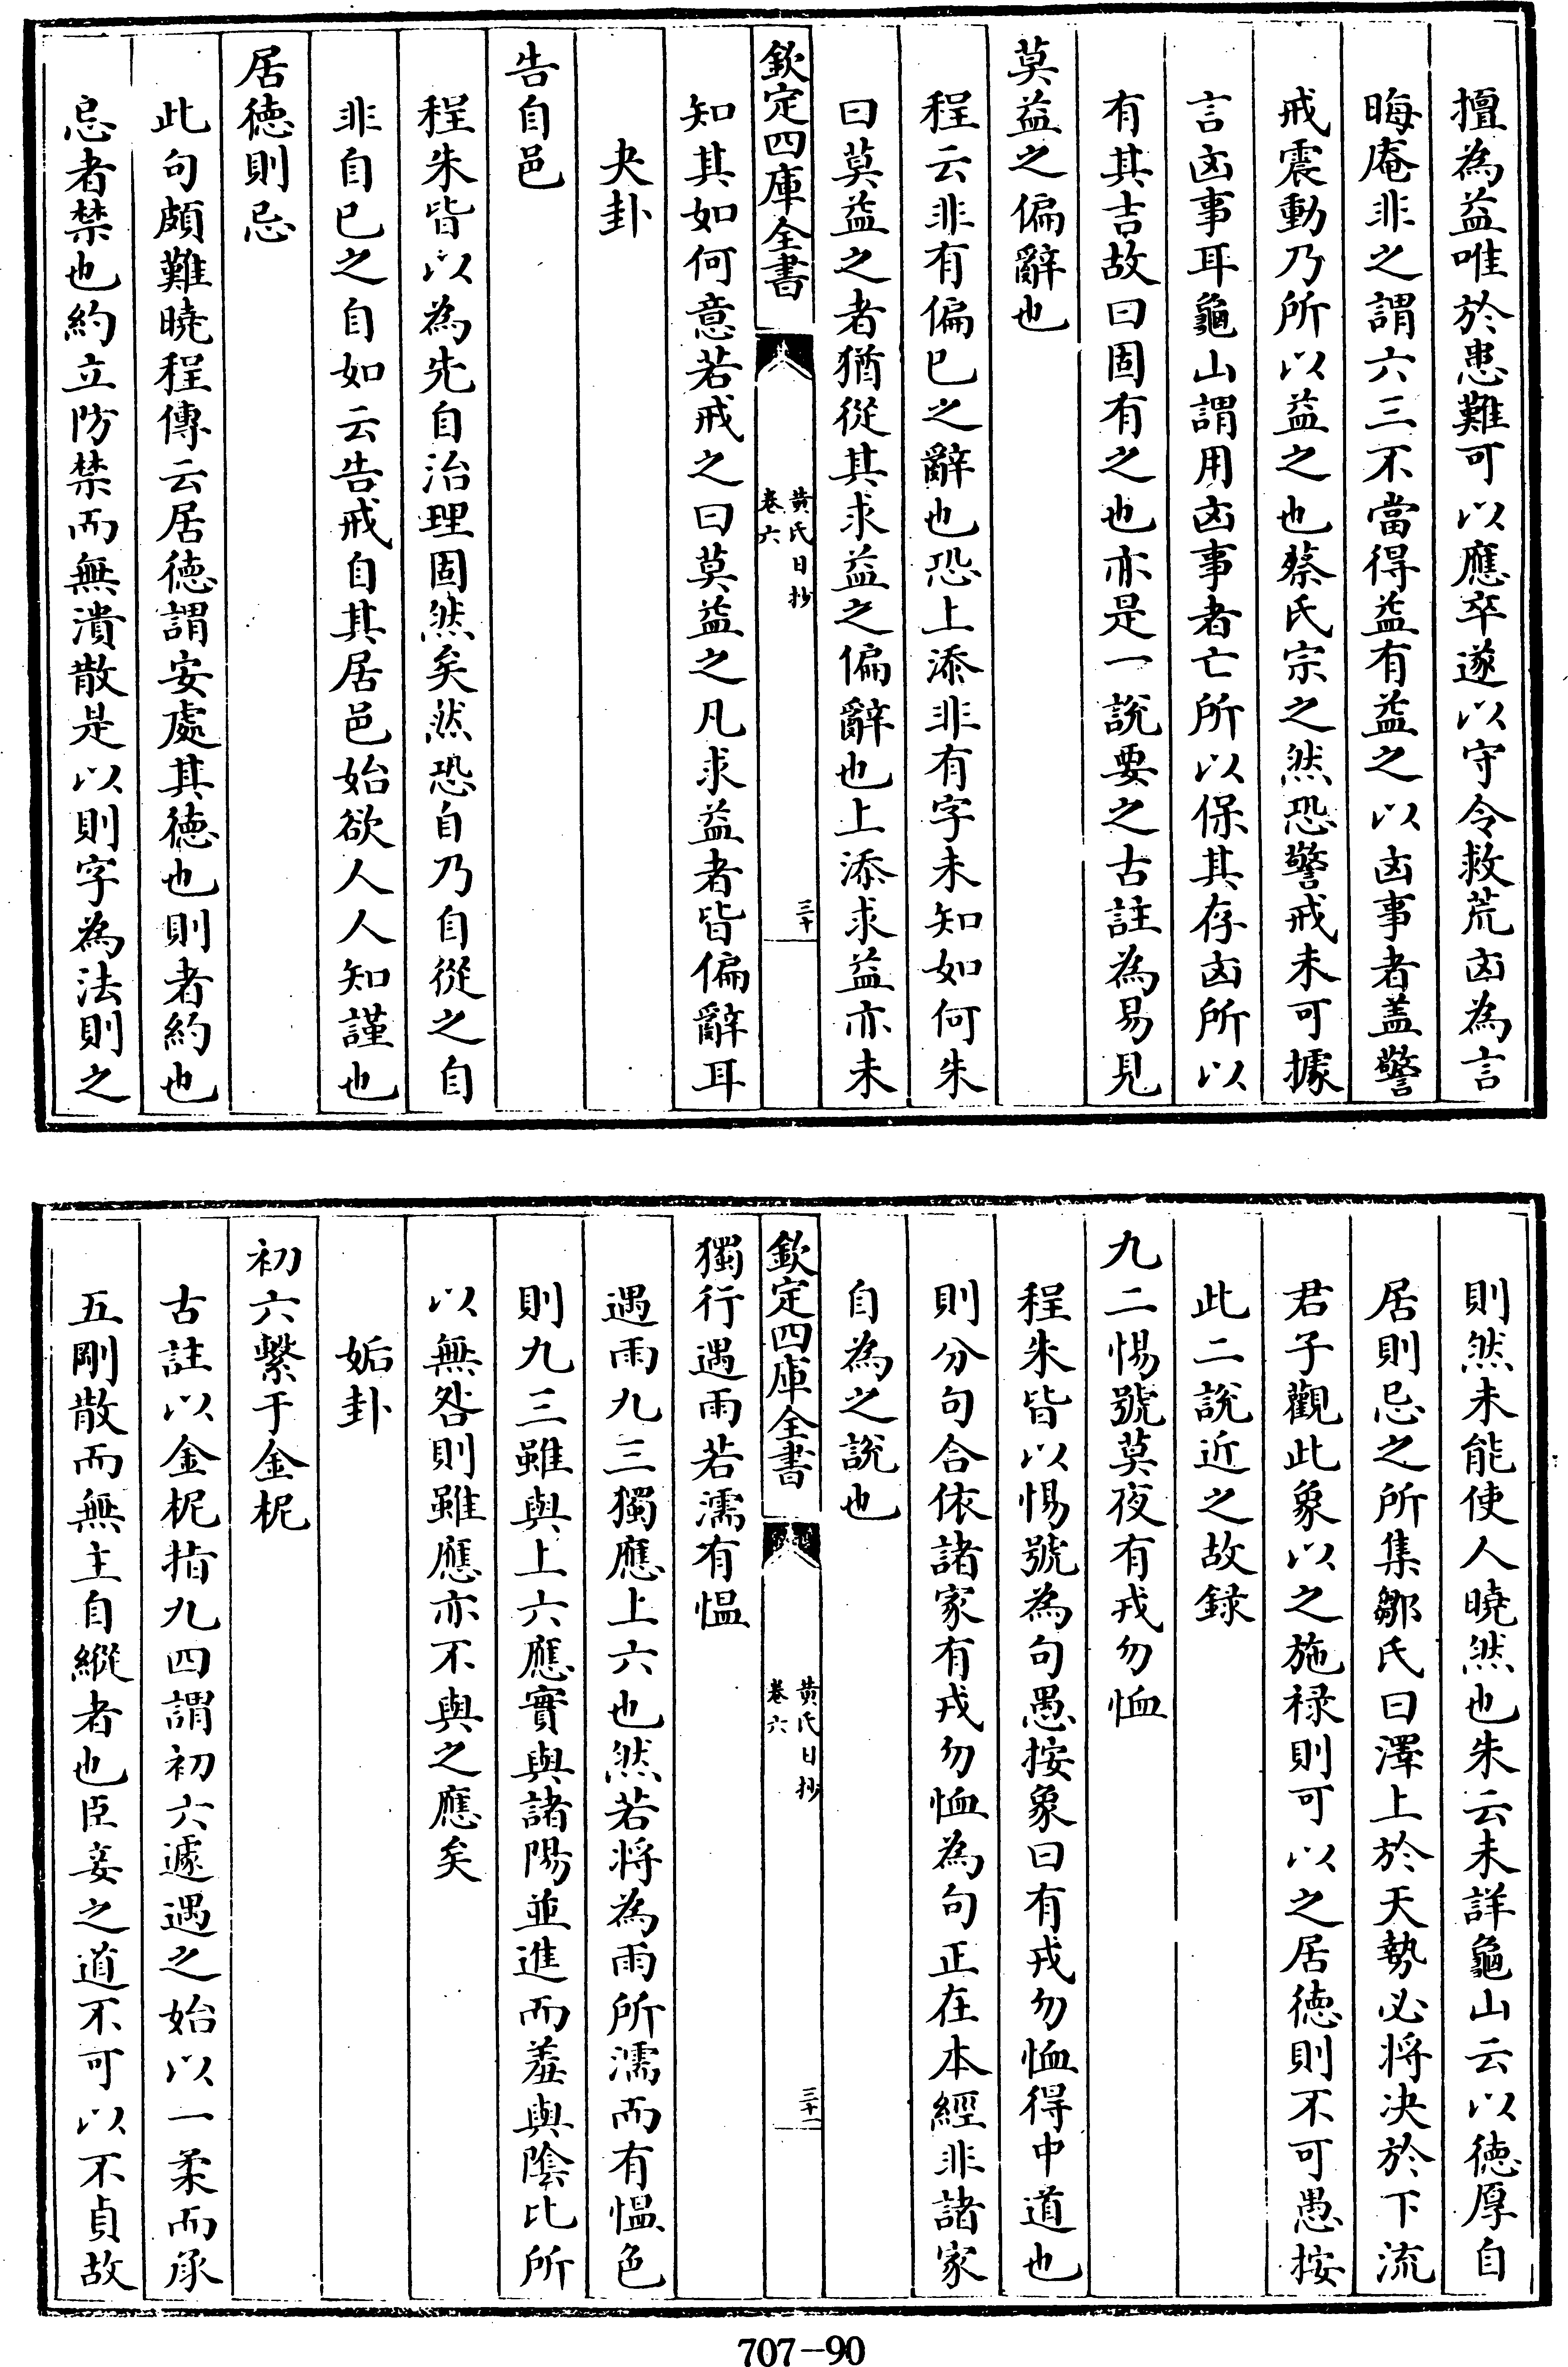 擅為益唯於患難可以應卒遂以守令救荒凶為言
晦庵非之謂六三不當得益有益之以凶事者盖警
戒震動乃所以益之也蔡氏宗之然恐警戒未可據
言凶事耳龜山謂用凶事者亡所以保其存凶所以
有其吉故曰固有之也亦是一說要之古註為易見
莫益之偏辭也
程云非有偏已之辭也恐上添非有字未知如何朱
曰莫益之者猶從其求益之偏辭也上添求益亦未
欽定四庫全書
黄氏日抄
卷六
三十
知其如何意若戒之曰莫益之凡求益者皆偏辭耳
夬卦
告自邑
程朱皆以為先自治理固然矣然恐自乃自從之自
非自已之自如云告戒自其居邑始欲人人知謹也
居徳則忌
此句頗難曉程傳云居徳謂安處其徳也則者約也
忌者禁也約立防禁而無潰散是以則字為法則之
則然未能使人曉然也朱云未詳龜山云以徳厚自
居則忌之所集鄒氏曰澤上於天勢必將决於下流
君子觀此象以之施禄則可以之居徳則不可愚按
此二說近之故録
九二惕號莫夜有戎勿恤
程朱皆以惕號為句愚按象曰有戎勿恤得中道也
則分句合依諸家有戎勿恤為句正在本經非諸家
自為之說也
欽定四庫全書
黄氏日抄
卷六
三十一
獨行遇雨若濡有愠
遇雨九三獨應上六也然若將為雨所濡而有愠色
則九三雖與上六應實與諸陽並進而羞與陰比所
以無咎則雖應亦不與之應矣
姤卦
初六繫于金柅
古註以金柅指九四謂初六遽遇之始以一柔而承
五剛散而無主自縱者也臣妾之道不可以不貞故
707-90